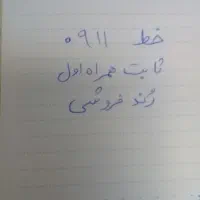 خط ۰۹۱۱
ثابت همراه اول
رند فروشی